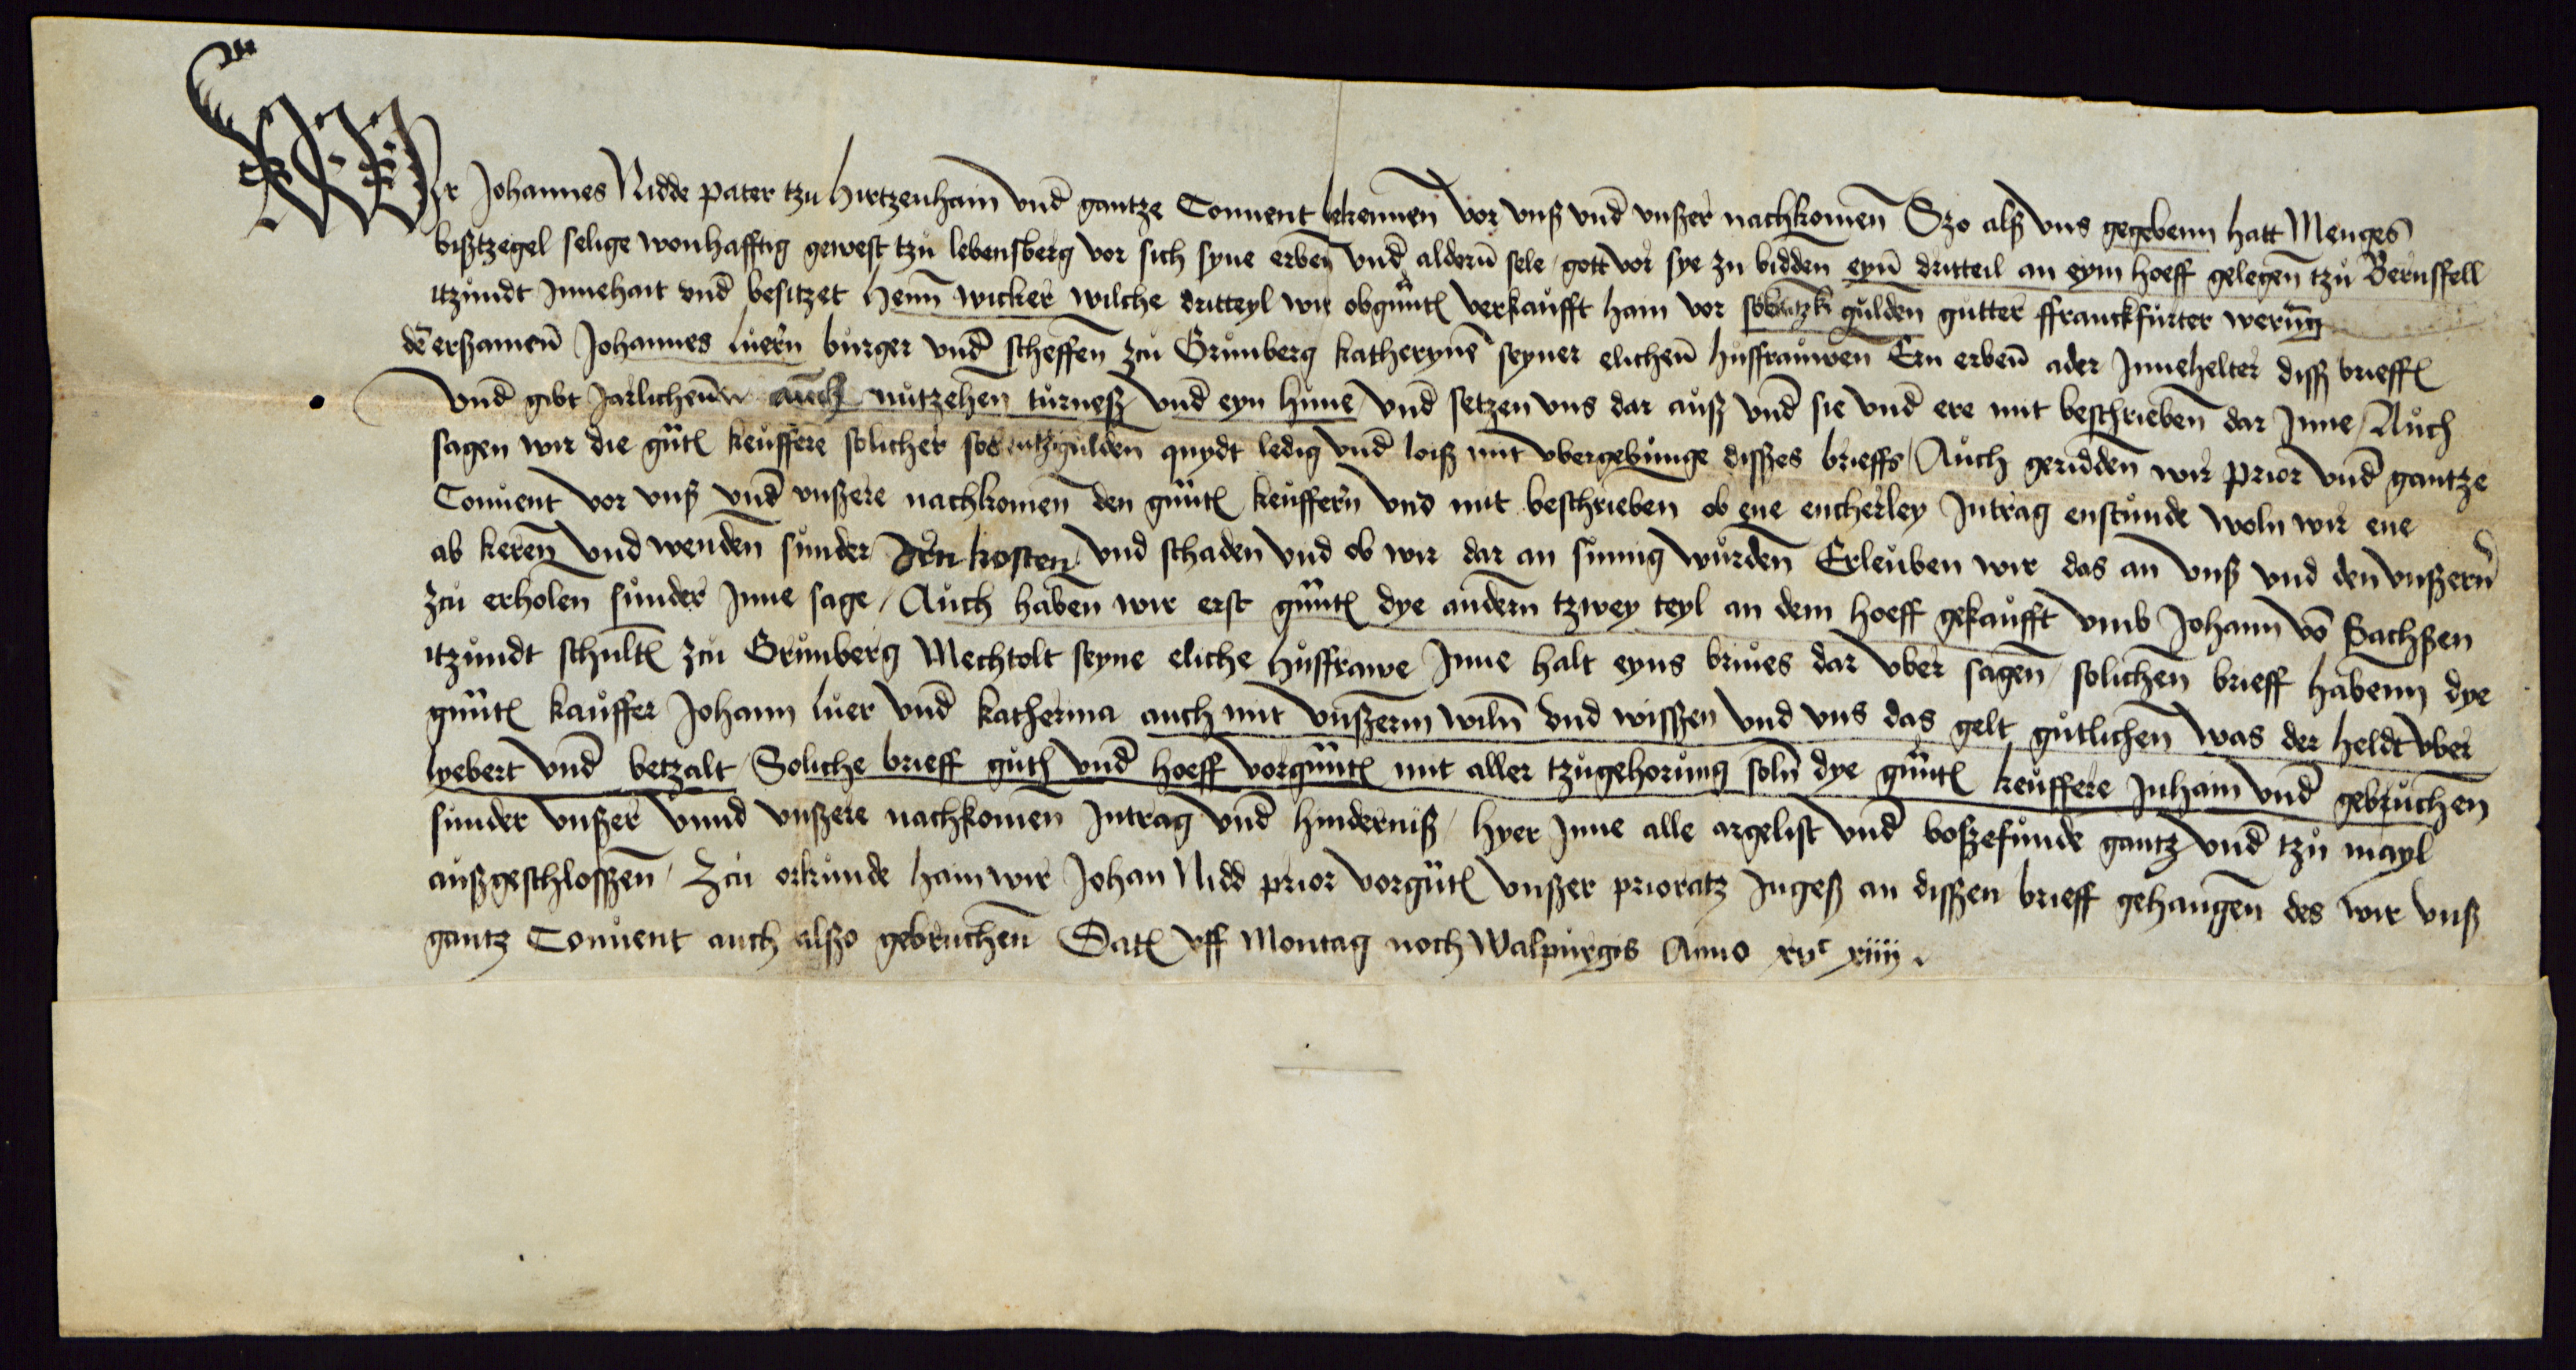 Wir Johannes Nidde pater tzu Hirtzenhain vnd gantze Conuent bekennen vor vnß vnd vnßer nachkomen Szo alß vns gegebenn hatt Menges
bißtzegel selige wonhafftig gewest tzu lebensberg vor sich syne erben vnd aldern sele gott vor sye zu bidden eyn dritteil an eym hoeff gelegen tzu Bernsfell
itzundt Innehait vnd besitzet Henn wicker wilche dritteyl wir obgnnt verkaufft ham vor gulden gutter ffranckfurter werung
den erßamen Johannes luern burger vnd scheffen zcu Grunberg katheryne seyner elichen hußfrauwen Ern erben ader Innehelter diß brieffs
vnd gibt Jarlichenn auch nutzehen turneß vnd eyn hune vnd setzen vns dar auß vnd sie vnd ere mit beschrieben dar Inne / Auch
sagen wir die gnt keuffere solicher gulden quydt ledig vnd loiß mit vbergebunge dißes brieffs / Auch geridden wir prior vnd gantze
Conuent vor vnß vnd vnßere nachkomen den gnnt keuffern vnd mit beschrieben ob ene encherley Intrag enstunde woln wir ene
ab keren vnd wenden sunder Irn kosten vnd schaden vnd ob wir dar an sumig wurden Erleuben wir das an vnß vnd den vnßern
zcu erholen sunder Inne sage / Auch haben wir erst gnnt dye andern tzwey teyl an dem hoeff gekaufft vmb Johann von Sachßen
itzundt schult zcu Grunberg Mechtolt seyne eliche hußfrawe Inne halt eyns briues dar vber sagen / solichen brieff habenn dye
gnnt kauffer Johann luer vnd katherina auch mit vnßerm wiln vnd wissen vnd vns das gelt gutlichen was der heldt vber
lyebert vnd betzalt Soliche brieff guth vnd hoeff vorgnnt mit aller tzugehorung soln dye gnnt keuffere Inhain vnd gebruchen
sunder vnßer vnnd vnßere nachkomen Intrag vnd hinderniß / hyer Inne alle argelist vnd boßefunde gantz vnd tzu mayl
außgeschloßen / Zcu orkunde ham wir Johan Nidd prior vorgnt vnßer prioratz Ingeß an dißen brieff gehangen des wir vnß
gantz Conuent auch alßo gebruchen Dat vff Montag noch Walpurgis Anno xvc xiiij